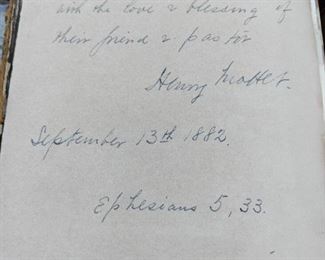 with the love & blessing of
their friend & pastor
Henry Mottet.
September 13th 1882.
Ephesians 5, 33.